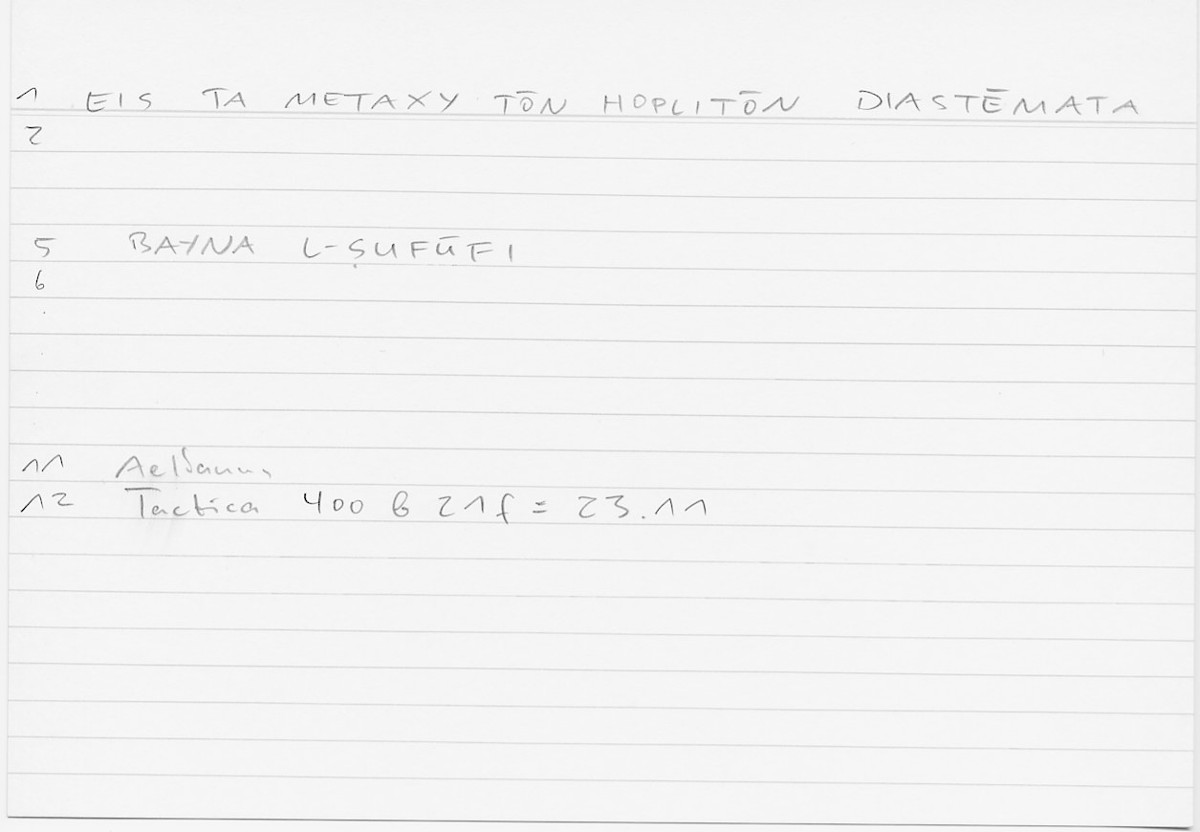 1 EIS TA METAXY TŌN HOPLITŌN DIASTĒMATA
2
5 BAYNA L-ṢUFŪFI
6
11 Aelianus
12 Tactica 400 b 21f = 23.11